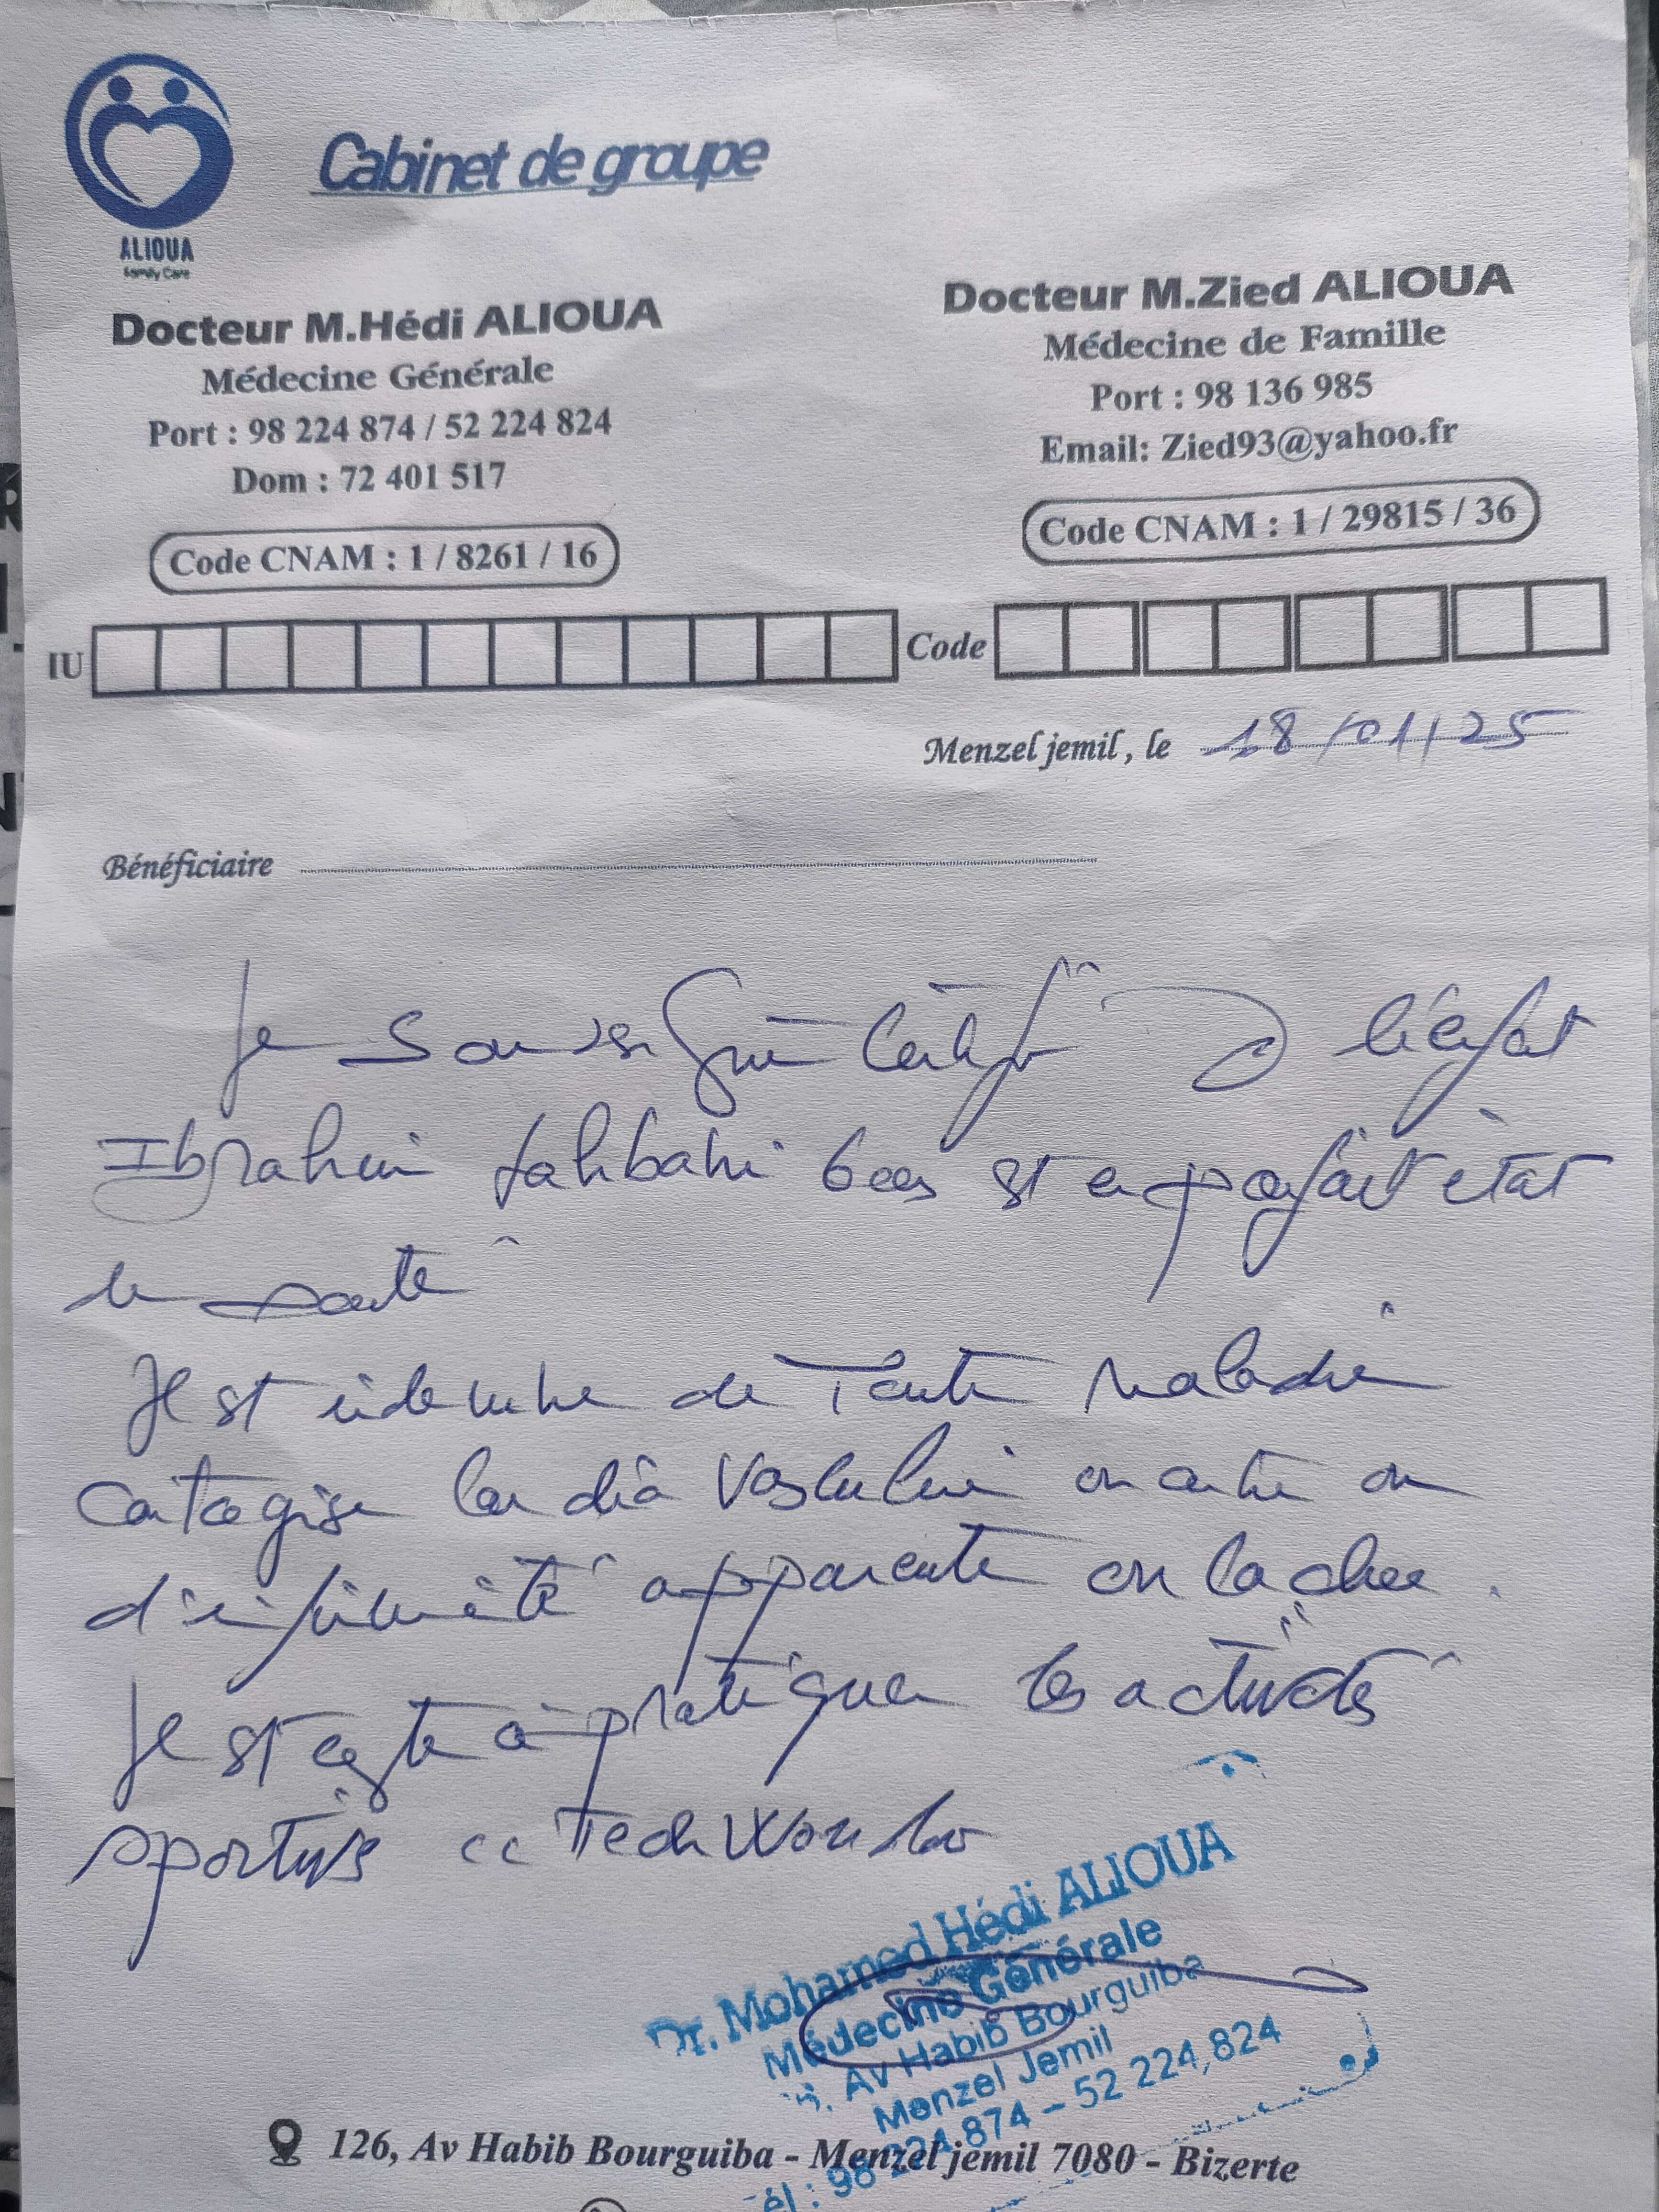 ALIOUA
Family Care
Cabinet de groupe
Docteur M.Hédi ALIOUA
Médecine Générale
Port : 98 224 874 / 52 224 824
Dom : 72 401 517
Code CNAM : 1 / 8261 / 16
Docteur M.Zied ALIOUA
Médecine de Famille
Port : 98 136 985
Email: Zied93@yahoo.fr
Code CNAM : 1 / 29815 / 36
IU
Code
Menzel jemil, le 18/01/25
Bénéficiaire
Je soussigné certifie l'enfant
Ibrahim 6 ans est en parfait état
de santé
Il est indemne de toute maladie
contagieuse cardio vasculaire ou autre ou
d'infirmité apparente ou cachée.
Il est apte à pratiquer les activités
sportives
Dr. Mohamed Hédi ALIOUA
Médecine Générale
Av Habib Bourguiba
Menzel Jemil
Tél : 98 224 874 - 52 224,824
126, Av Habib Bourguiba - Menzel jemil 7080 - Bizerte